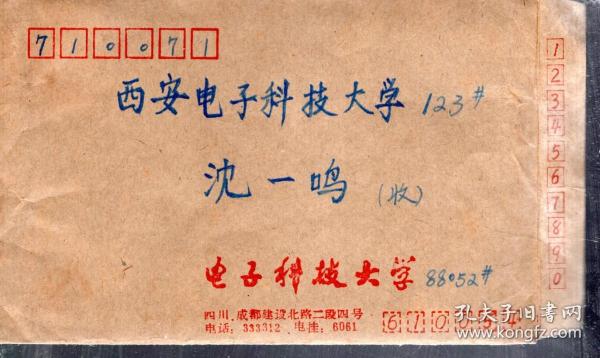 710071
西安电子科技大学 123#
沈一鸣 (收)
电子科技大学 88052#
四川.成都建设北路二段四号
电话: 333312 电挂: 6061
6100
1
2
3
4
5
6
7
8
9
0
孔夫子旧书网
www.kongfz.com